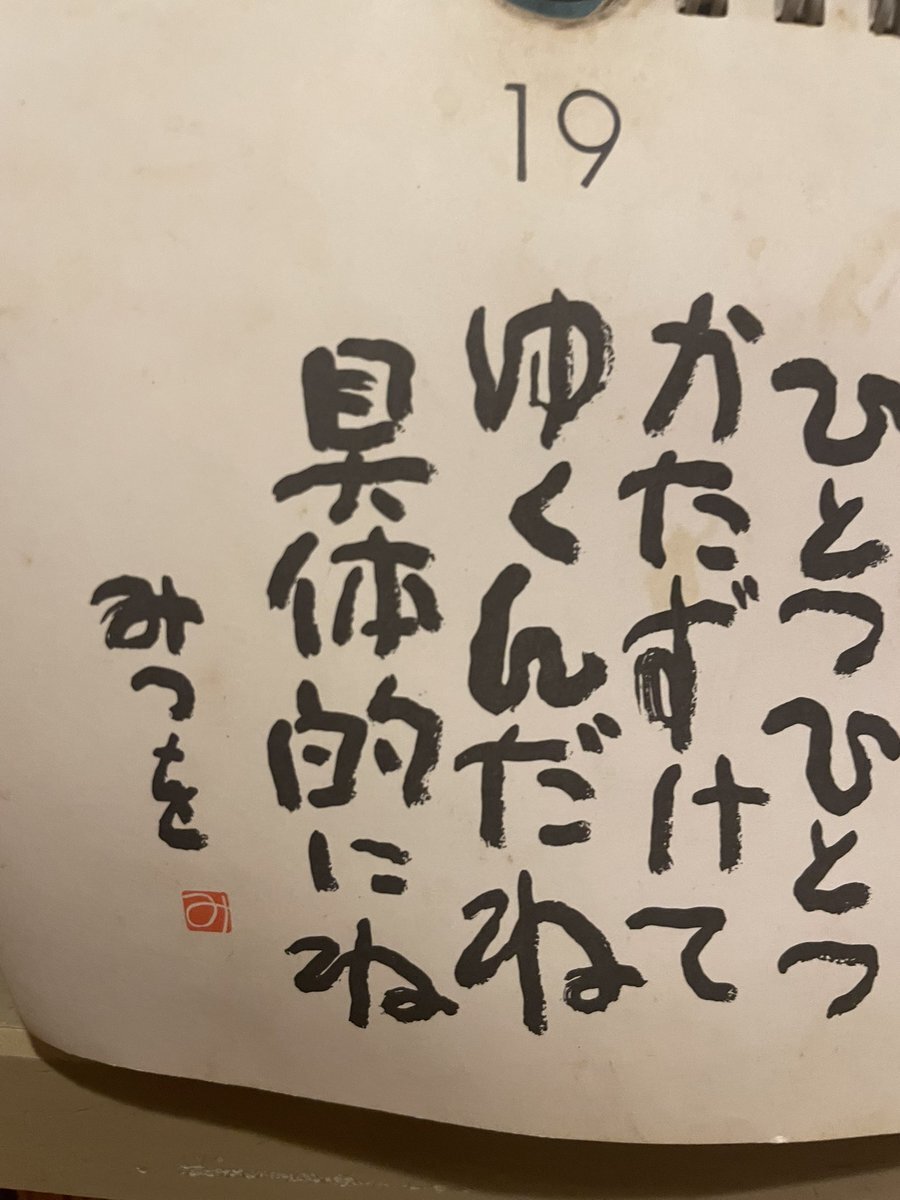 19
ひとつひとつ
かたずけて
ゆくんだね
具体的にね
みつを
み